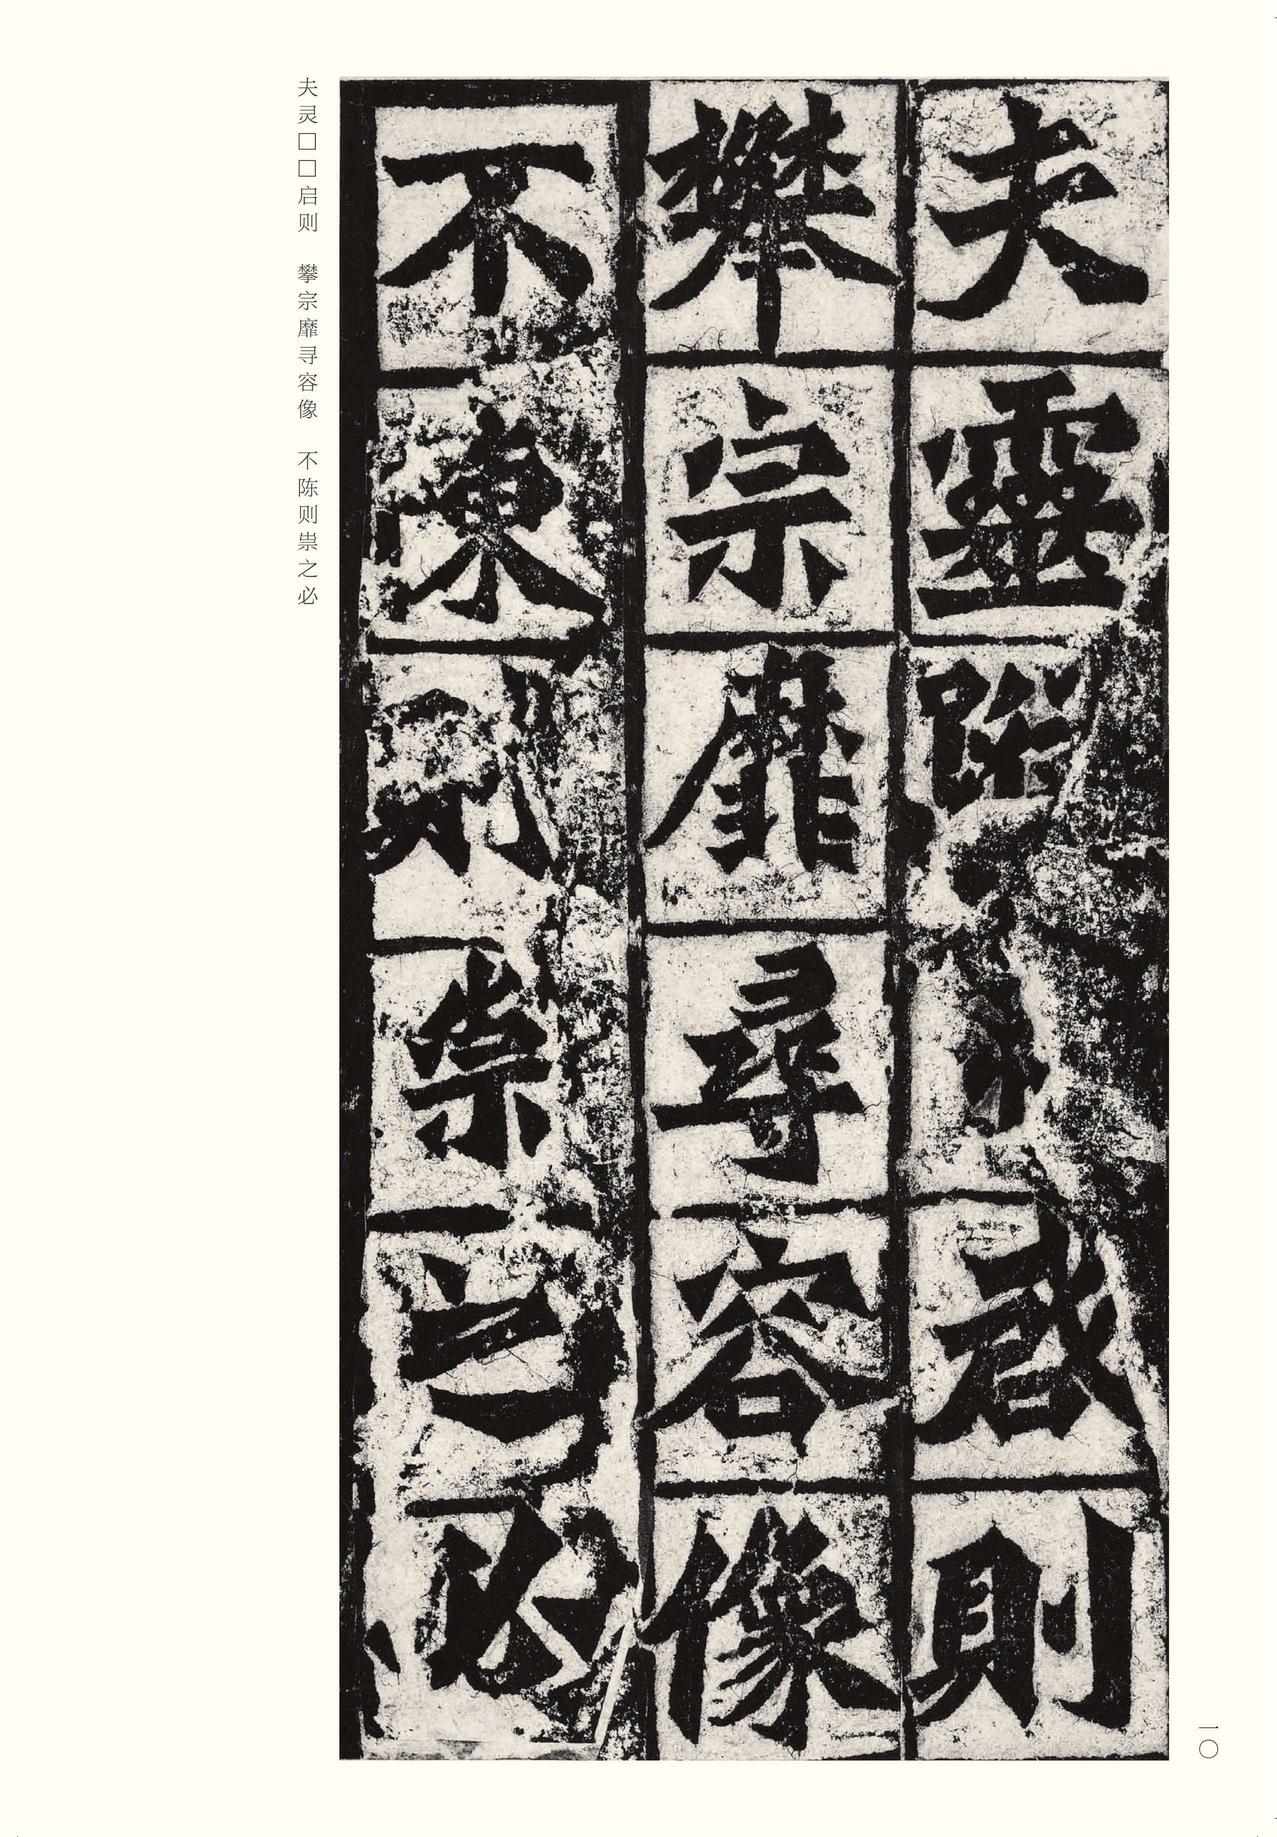 夫靈啓則
攀宗靡尋容像
不陳則祟之必
夫灵□□启则　攀宗靡寻容像　不陈则祟之必
一〇